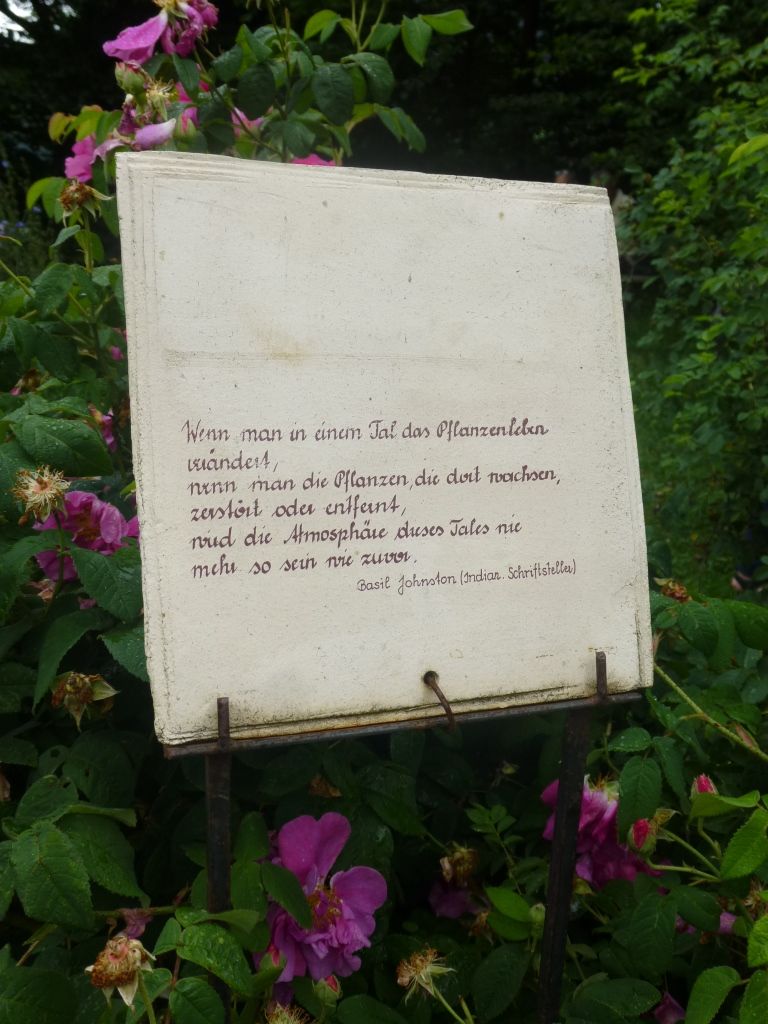 Wenn man in einem Tal das Pflanzenleben
verändert,
wenn man die Pflanzen, die dort wachsen,
zerstört oder entfernt,
wird die Atmosphäre dieses Tales nie
mehr so sein wie zuvor.
Basil Johnston (Indian. Schriftsteller)